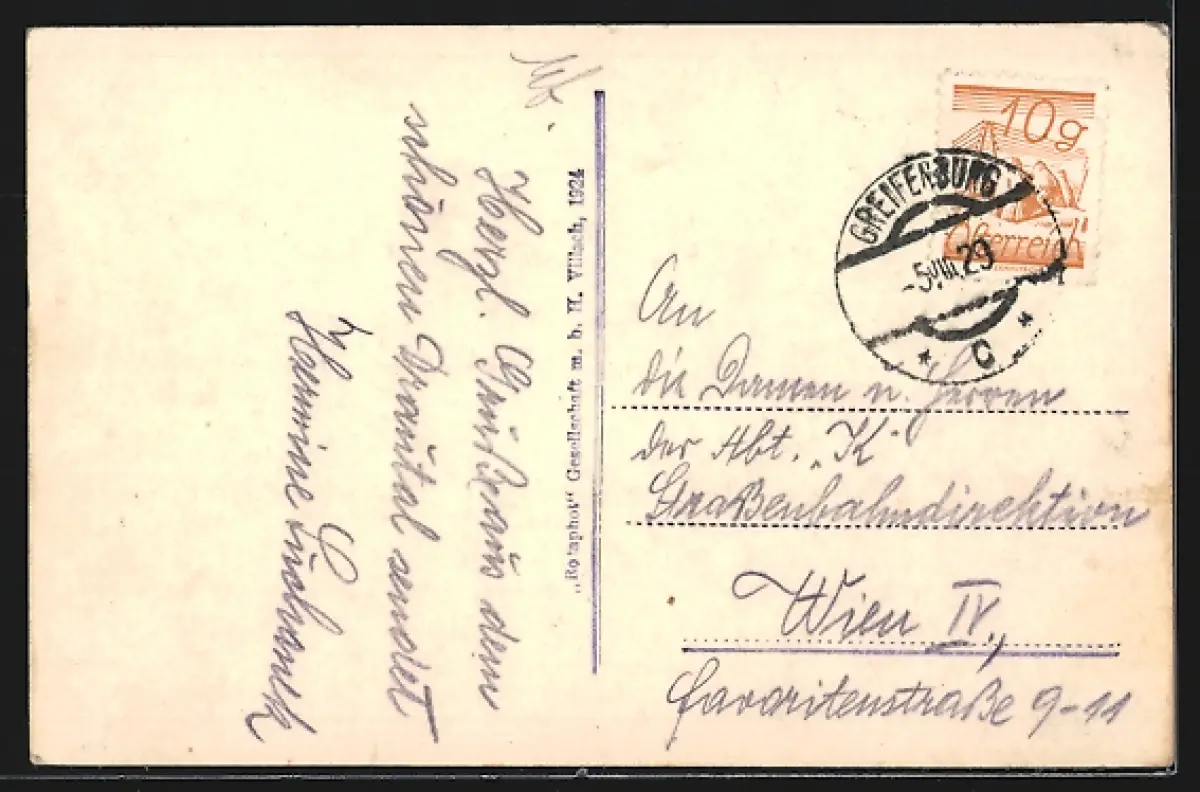 Herzl. Grüße aus dem
schönen Drautal sendet
Hermine
"Rotaphot" Gesellschaft m. b. H. Villach, 1924
10g
Österreich
GREIFENBURG
-5.VIII.29
* C *
An
die Damen u. Herren
der Abt. "K"
Straßenbahndirektion
Wien IV.,
Favoritenstraße 9-11